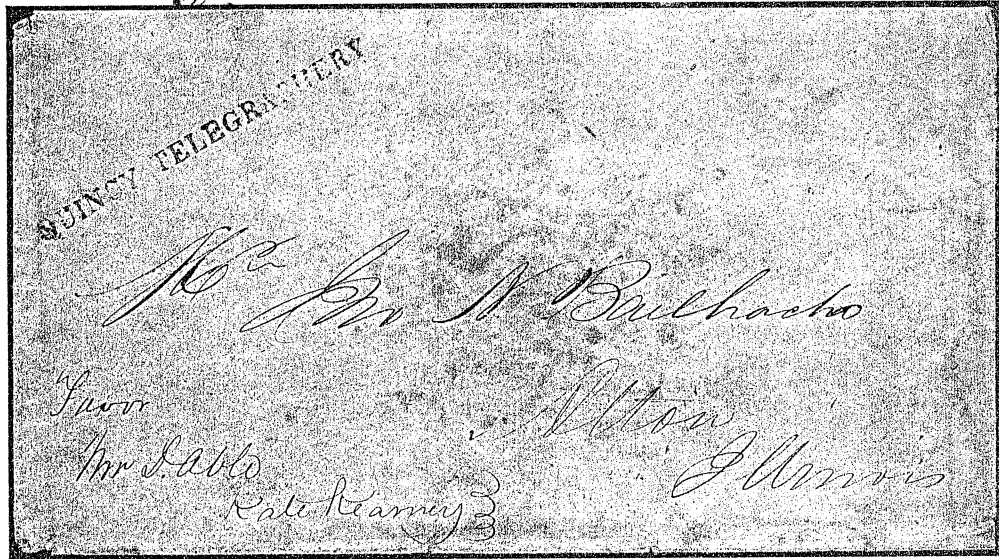 QUINCY TELEGRAPHERY
Mr Jno W Bailhache
Alton
Illinois
Favor
Mr D. Able
Kate Kearney